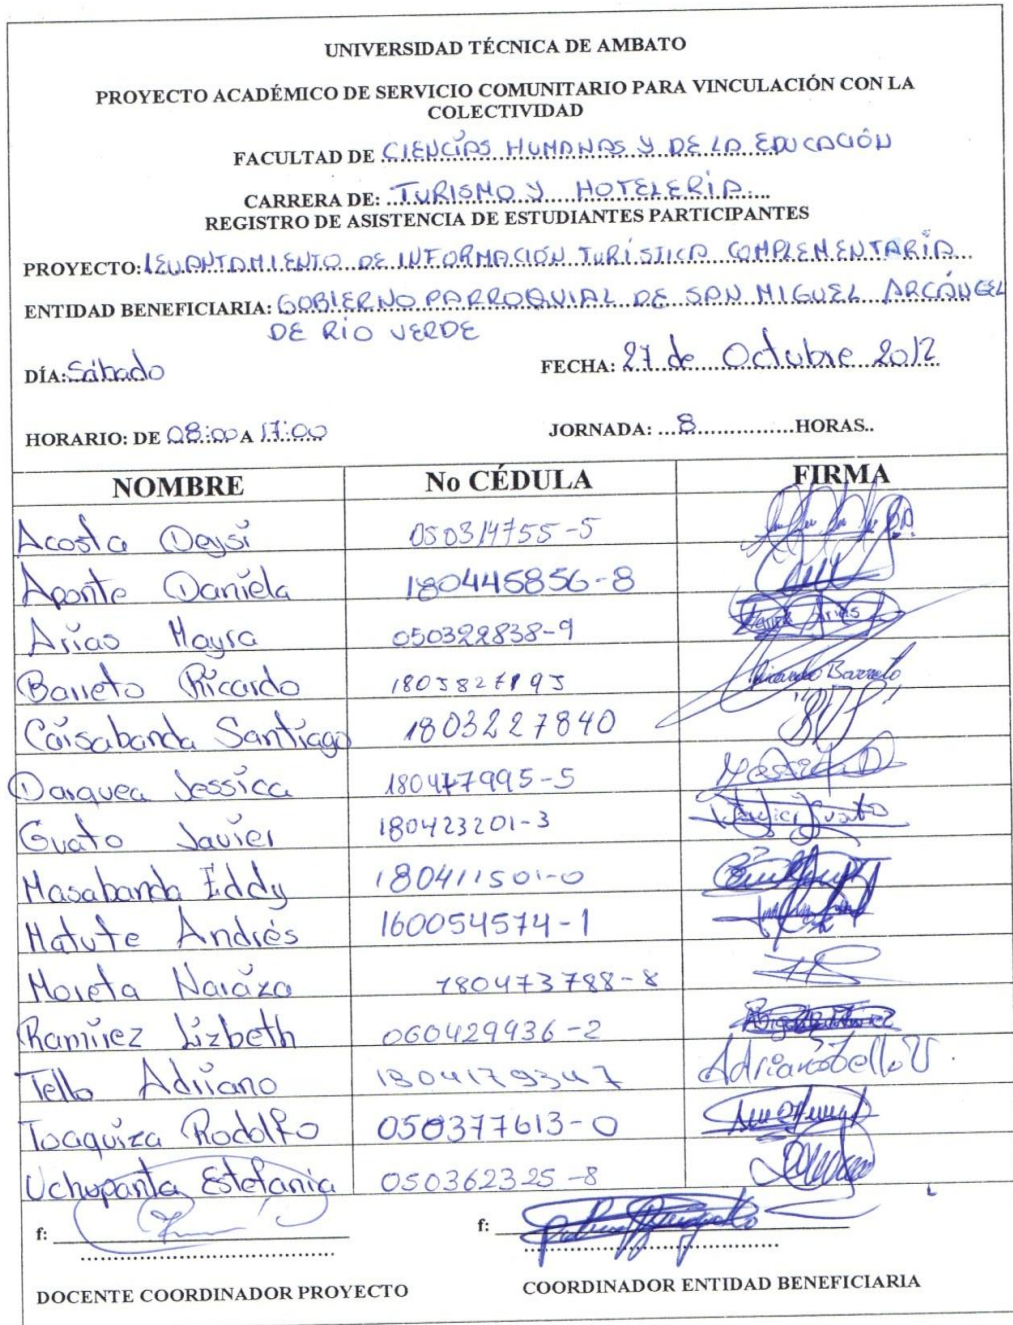 UNIVERSIDAD TÉCNICA DE AMBATO
PROYECTO ACADÉMICO DE SERVICIO COMUNITARIO PARA VINCULACIÓN CON LA
COLECTIVIDAD
FACULTAD DE CIENCIAS HUMANAS Y DE LA EDUCACIÓN
CARRERA DE: TURISMO Y HOTELERÍA
REGISTRO DE ASISTENCIA DE ESTUDIANTES PARTICIPANTES
PROYECTO: LEVANTAMIENTO DE INFORMACIÓN TURÍSTICA COMPLEMENTARIA
ENTIDAD BENEFICIARIA: GOBIERNO PARROQUIAL DE SAN MIGUEL ARCÁNGEL
DE RÍO VERDE
DÍA: Sábado FECHA: 27 de Octubre 2012
HORARIO: DE 08:00 A 17:00 JORNADA: ...8...............HORAS..
NOMBRE No CÉDULA FIRMA
Acosta Deysi 050314755-5
Aponte Daniela 180445856-8
Arias Mayra 050328838-9 Mayra Arias
Barreto Ricardo Ricardo Barreto
Caisabanda Santiago 1803227840
Darquea Jessica 180477995-5
Guato Javier 180423201-3 Javier Guato
Masabanda Eddy 180411501-0
Matute Andrés 160054574-1
Moreta Naraza 180473788-8
Ramírez Lizbeth 060429936-2
Tello Adriano 1804179347 Adriano Tello V.
Toaquiza Rodolfo 050377613-0
Uchupanta Estefania 050362325-8
f: f:
DOCENTE COORDINADOR PROYECTO COORDINADOR ENTIDAD BENEFICIARIA